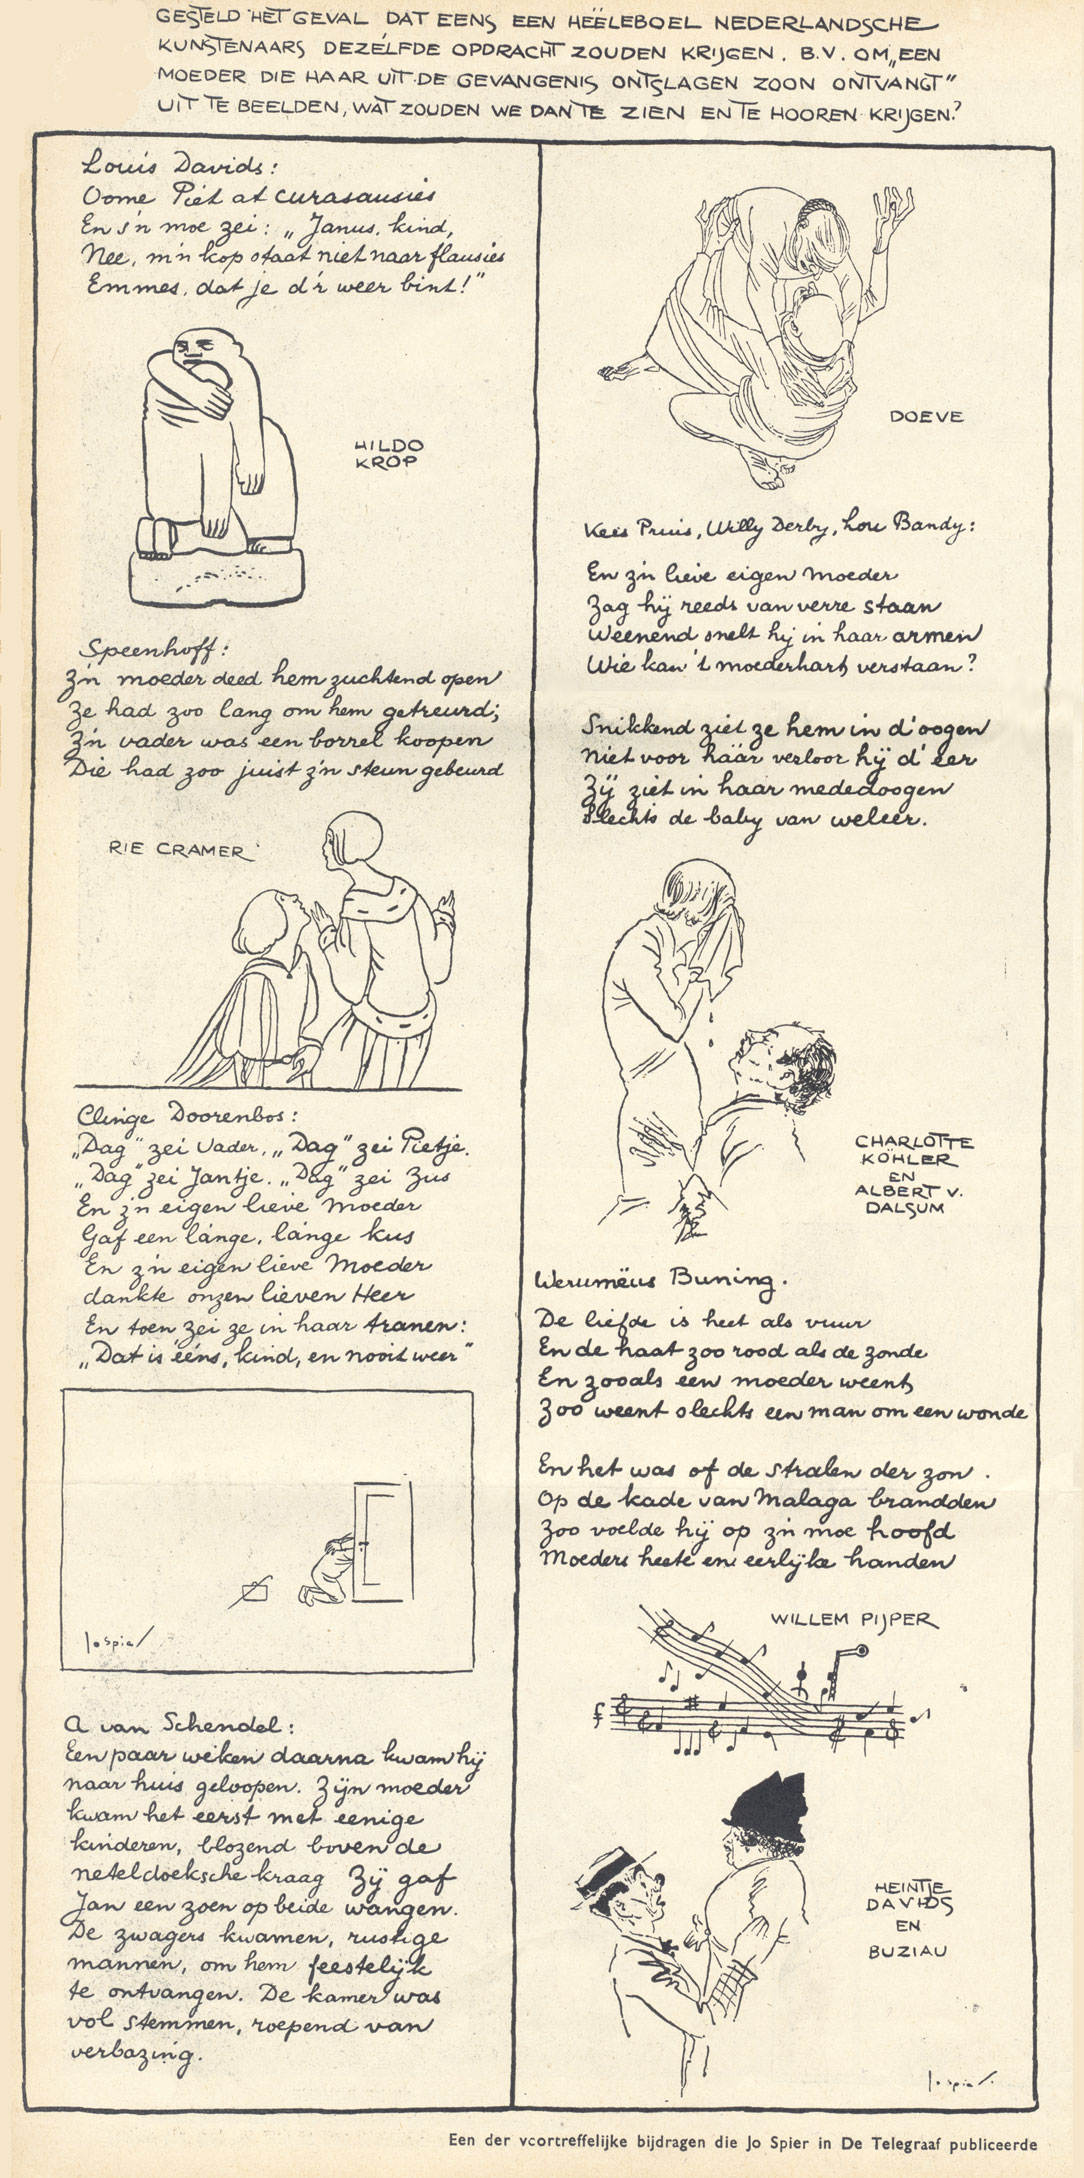 GESTELD HET GEVAL DAT EENS EEN HEËLEBOEL NEDERLANDSCHE
KUNSTENAARS DEZELFDE OPDRACHT ZOUDEN KRIJGEN. B.V. OM „EEN
MOEDER DIE HAAR UIT DE GEVANGENIS ONTSLAGEN ZOON ONTVANGT"
UIT TE BEELDEN, WAT ZOUDEN WE DAN TE ZIEN EN TE HOOREN KRIJGEN?
Louis Davids:
Oome Piet at curasausies
En z'n moe zei: „Janus, kind,
Nee, m'n kop staat niet naar flausies
Emmes, dat je d'r weer bint!"
HILDO
KROP
Speenhoff:
Z'n moeder deed hem zuchtend open
Ze had zoo lang om hem getreurd;
Z'n vader was een borrel koopen
Die had zoo juist z'n steun gebeurd
RIE CRAMER
Clinge Doorenbos:
„Dag" zei Vader, „Dag" zei Pietje.
„Dag" zei Jantje. „Dag" zei Zus
En z'n eigen lieve Moeder
Gaf een lánge, lánge kus
En z'n eigen lieve Moeder
dankte onzen lieven Heer
En toen zei ze in haar tranen:
„Dat is ééns, kind, en nooit weer"
Jo Spier
A van Schendel:
Een paar weken daarna kwam hij
naar huis geloopen. Zijn moeder
kwam het eerst met eenige
kinderen, blozend boven de
neteldoeksche kraag Zij gaf
Jan een zoen op beide wangen.
De zwagers kwamen, rustige
mannen, om hem feestelijk
te ontvangen. De kamer was
vol stemmen, roepend van
verbazing.
DOEVE
Kees Pruis, Willy Derby, Lou Bandy:
En z'n lieve eigen Moeder
Zag hij reeds van verre staan
Weenend snelt hij in haar armen
Wie kan 't moederhart verstaan?
Snikkend ziet ze hem in d'oogen
Niet voor háár verloor hij d'eer
Zij ziet in haar mededoogen
Slechts de baby van weleer.
CHARLOTTE
KÖHLER
EN
ALBERT V.
DALSUM
Werumëus Buning.
De liefde is heet als vuur
En de haat zoo rood als de zonde
En zooals een moeder weent
Zoo weent slechts een man om een wonde
En het was of de stralen der zon
Op de kade van Malaga brandden
Zoo voelde hij op z'n moe hoofd
Moeders heete en eerlijke handen
WILLEM PIJPER
HEINTJE
DAVIDS
EN
BUZIAU
Jo Spier
Een der voortreffelijke bijdragen die Jo Spier in De Telegraaf publiceerde